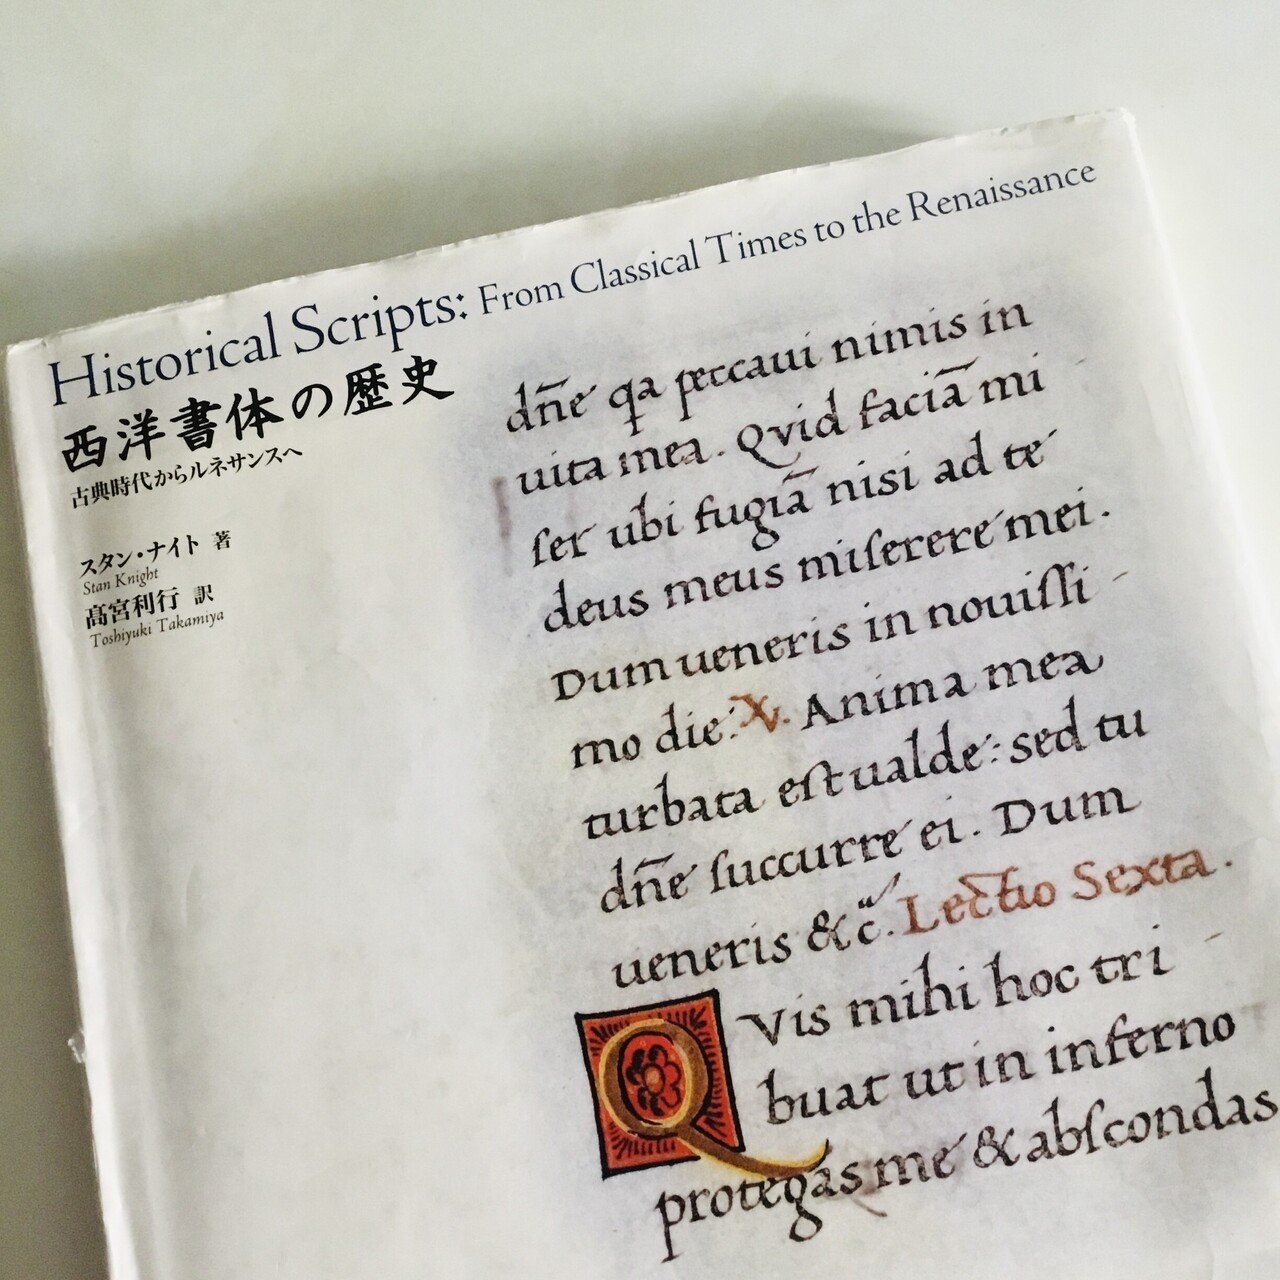 Historical Scripts: From Classical Times to the Renaissance
西洋書体の歴史
古典時代からルネサンスへ
スタン・ナイト 著
Stan Knight
髙宮利行 訳
Toshiyuki Takamiya
dn̄e qa peccaui nimis in
uita mea. Qvid faciā mi
ſer ubi fugiā nisi ad te
deus meus miſerere mei.
Dum ueneris in nouiſſi
mo die. V. Anima mea
turbata eſt ualde: sed tu
dn̄e ſuccurre ei. Dum
ueneris &c. Lectio Sexta.
QVis mihi hoc tri
buat ut in inferno
protegas me & abſcondas